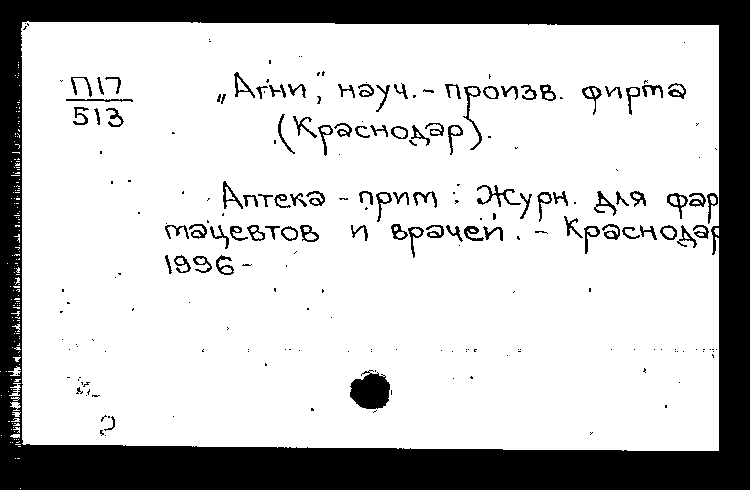 П17
513
„Агни", науч.-произв. фирма
(Краснодар).
Аптека-прим : Журн. для фар
мацевтов и врачей. - Краснодар
1996-